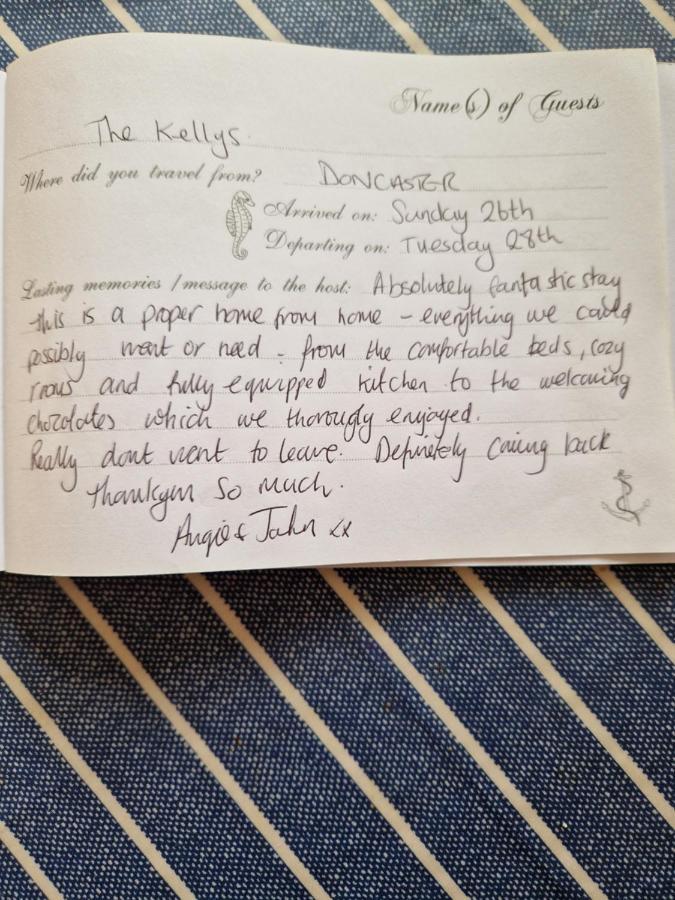 Name(s) of Guests
The Kellys.
Where did you travel from? DONCASTER
Arrived on: Sunday 26th
Departing on: Tuesday 28th
Lasting memories / message to the host: Absolutely fantastic stay
this is a proper home from home - everything we could
possibly want or need - from the comfortable beds, cozy
and fully equipped kitchen to the welcoming
chocolates which we thorougly enjoyed.
Really dont want to leave. Definetely coming back
thankyou so much.
Angie & John xx